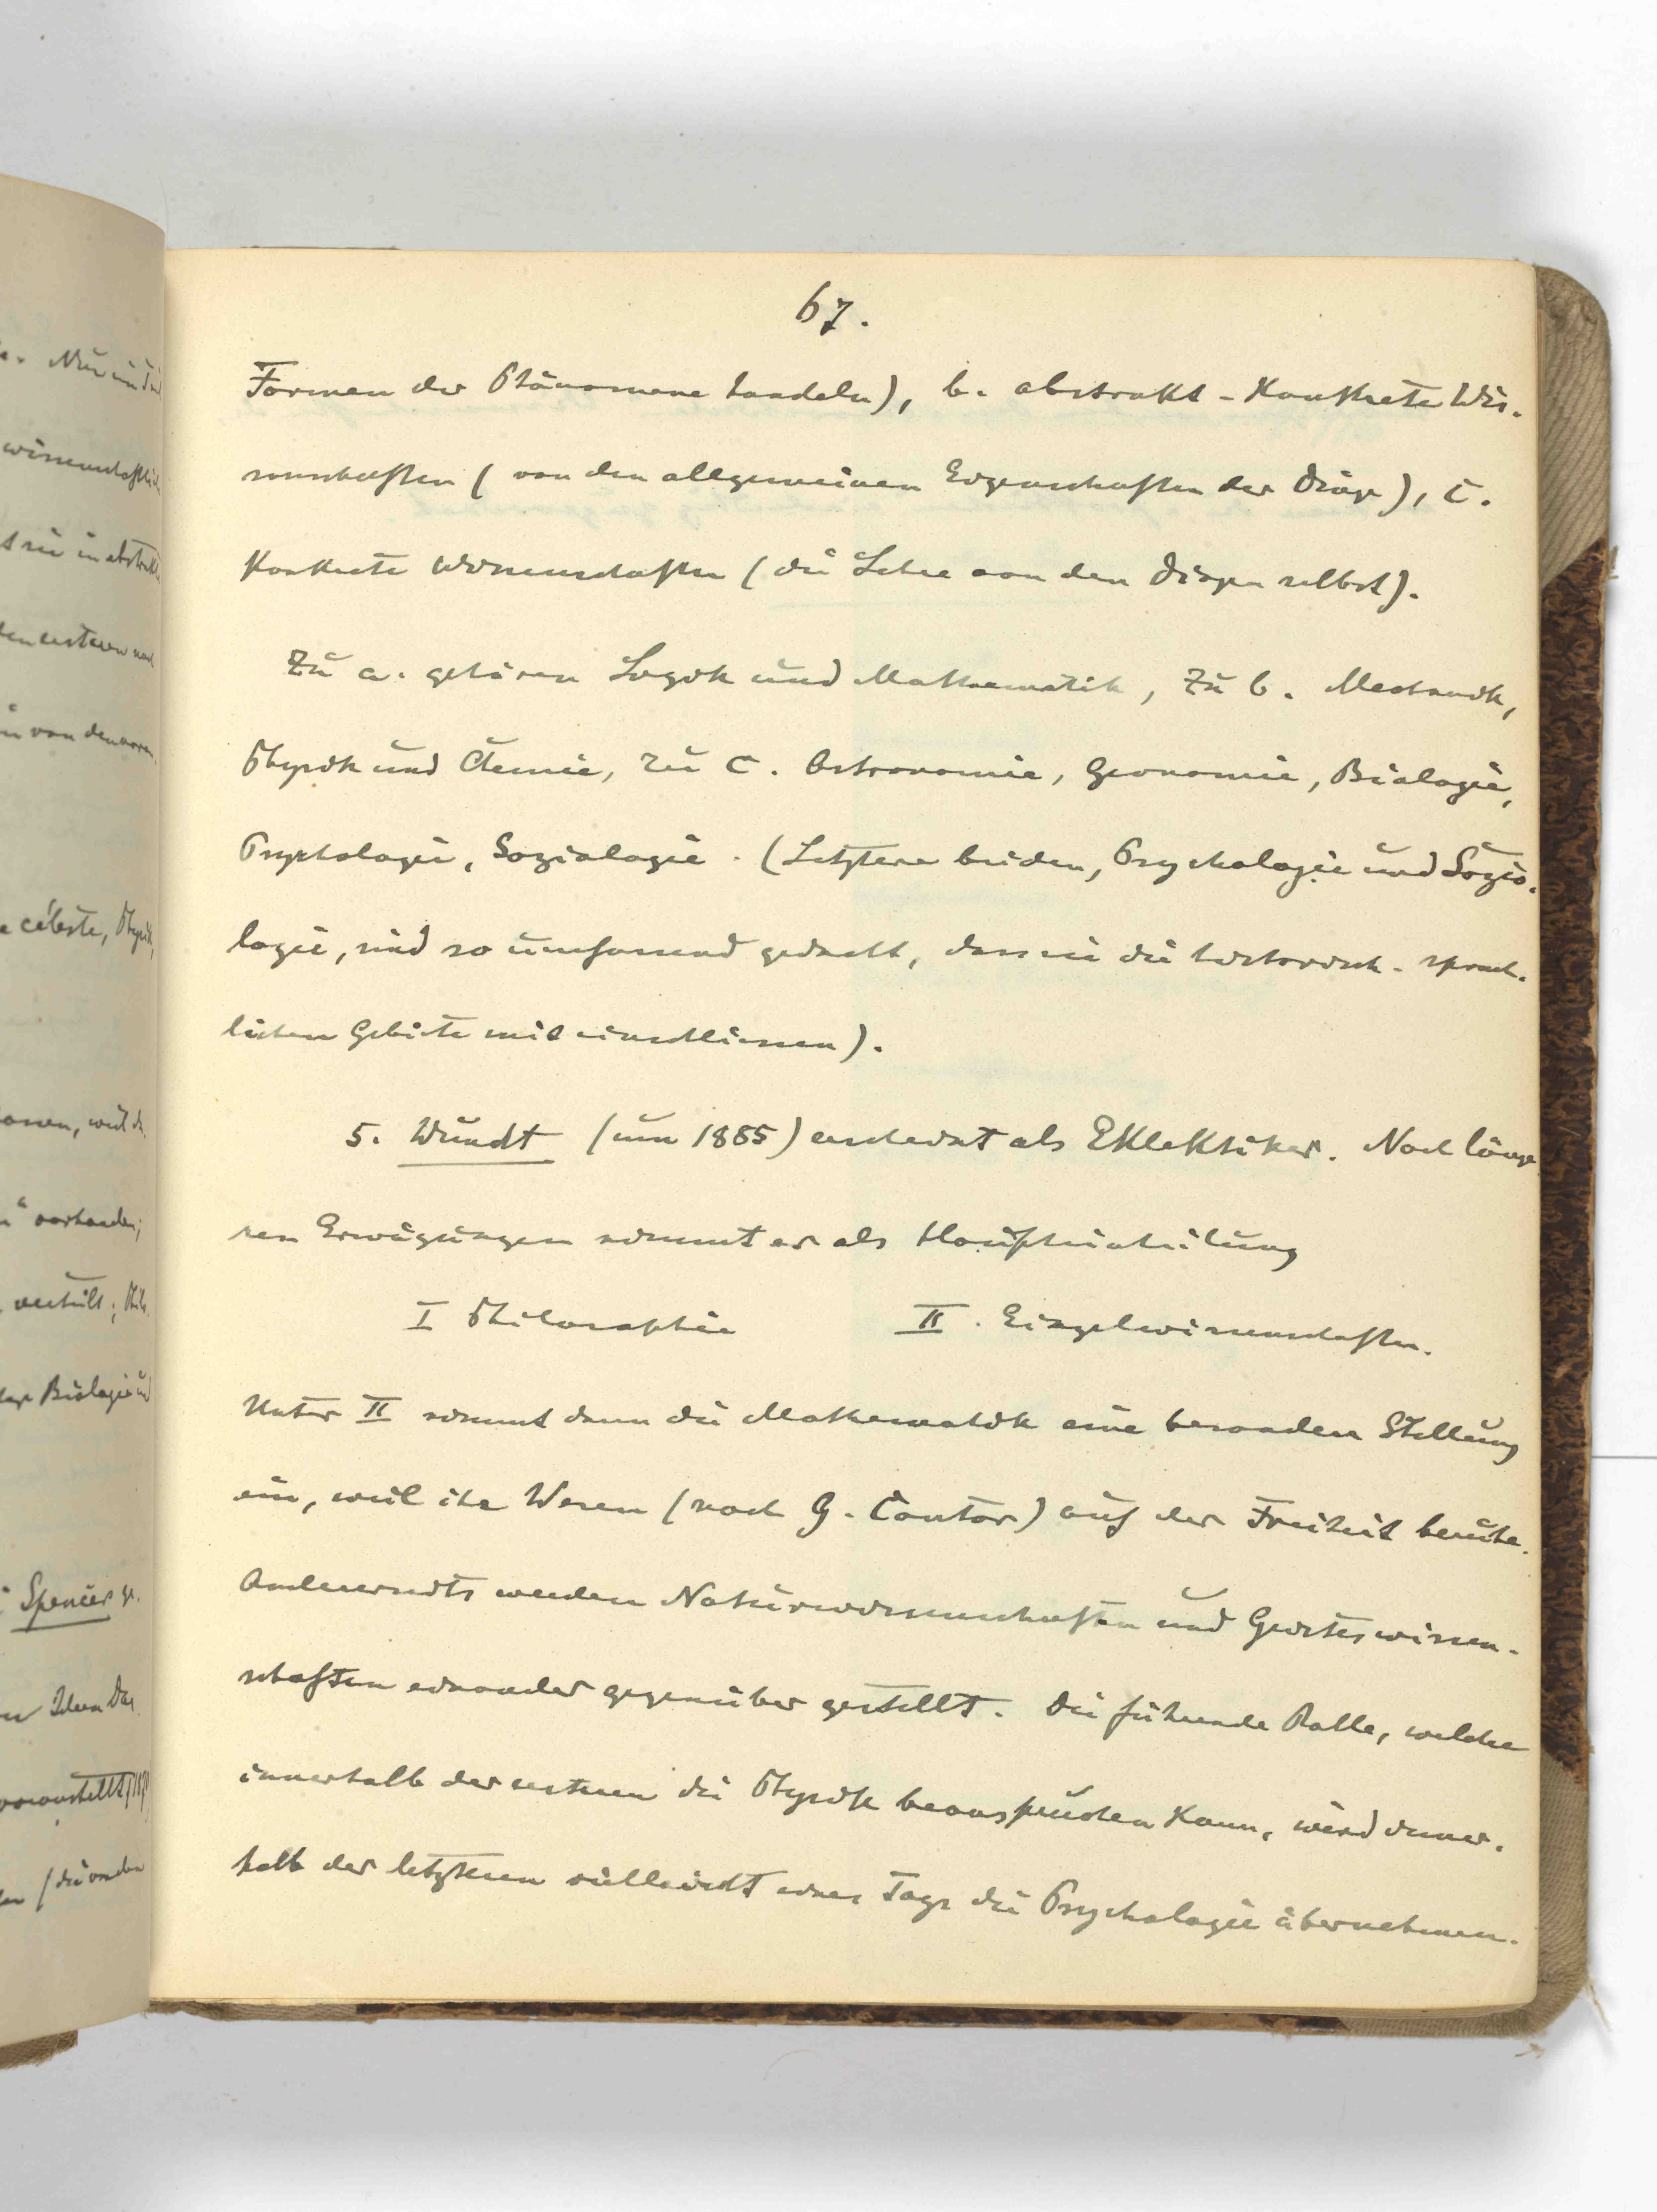 67.
Formen der Phänomene handeln), b. abstrakt-konkrete Wis-
senschaften (von den allgemeinen Eigenschaften der Dinge), c.
konkrete Wissenschaften (die Lehre von den Dingen selbst).
Zu a. gehören Logik und Mathematik, zu b. Mechanik,
Physik und Chemie, zu c. Astronomie, Geonomie, Biologie,
Psychologie, Soziologie. (Letztere beiden, Psychologie und Sozio-
logie, sind so umfassend gedacht, dass sie die historisch-sprach-
lichen Gebiete mit einschliessen).
5. Wundt (um 1885) erscheint als Eklektiker. Nach länge-
ren Erwägungen nimmt er als Haupteinteilung
I Philosophie II. Einzelwissenschaften.
Unter II nimmt dann die Mathematik eine besondere Stellung
ein, weil ihr Wesen (nach G. Cantor) auf der Freiheit beruhe.
Andererseits werden Naturwissenschaften und Geisteswissen-
schaften einander gegenüber gestellt. Die führende Rolle, welche
innerhalb der ersteren die Physik beanspruchen kann, wird inner-
halb der letzteren vielleicht eines Tags die Psychologie übernehmen.
wissenschaftlich
céleste, Physik,
vorhanden;
verteilt;
Biologie und
Spencer